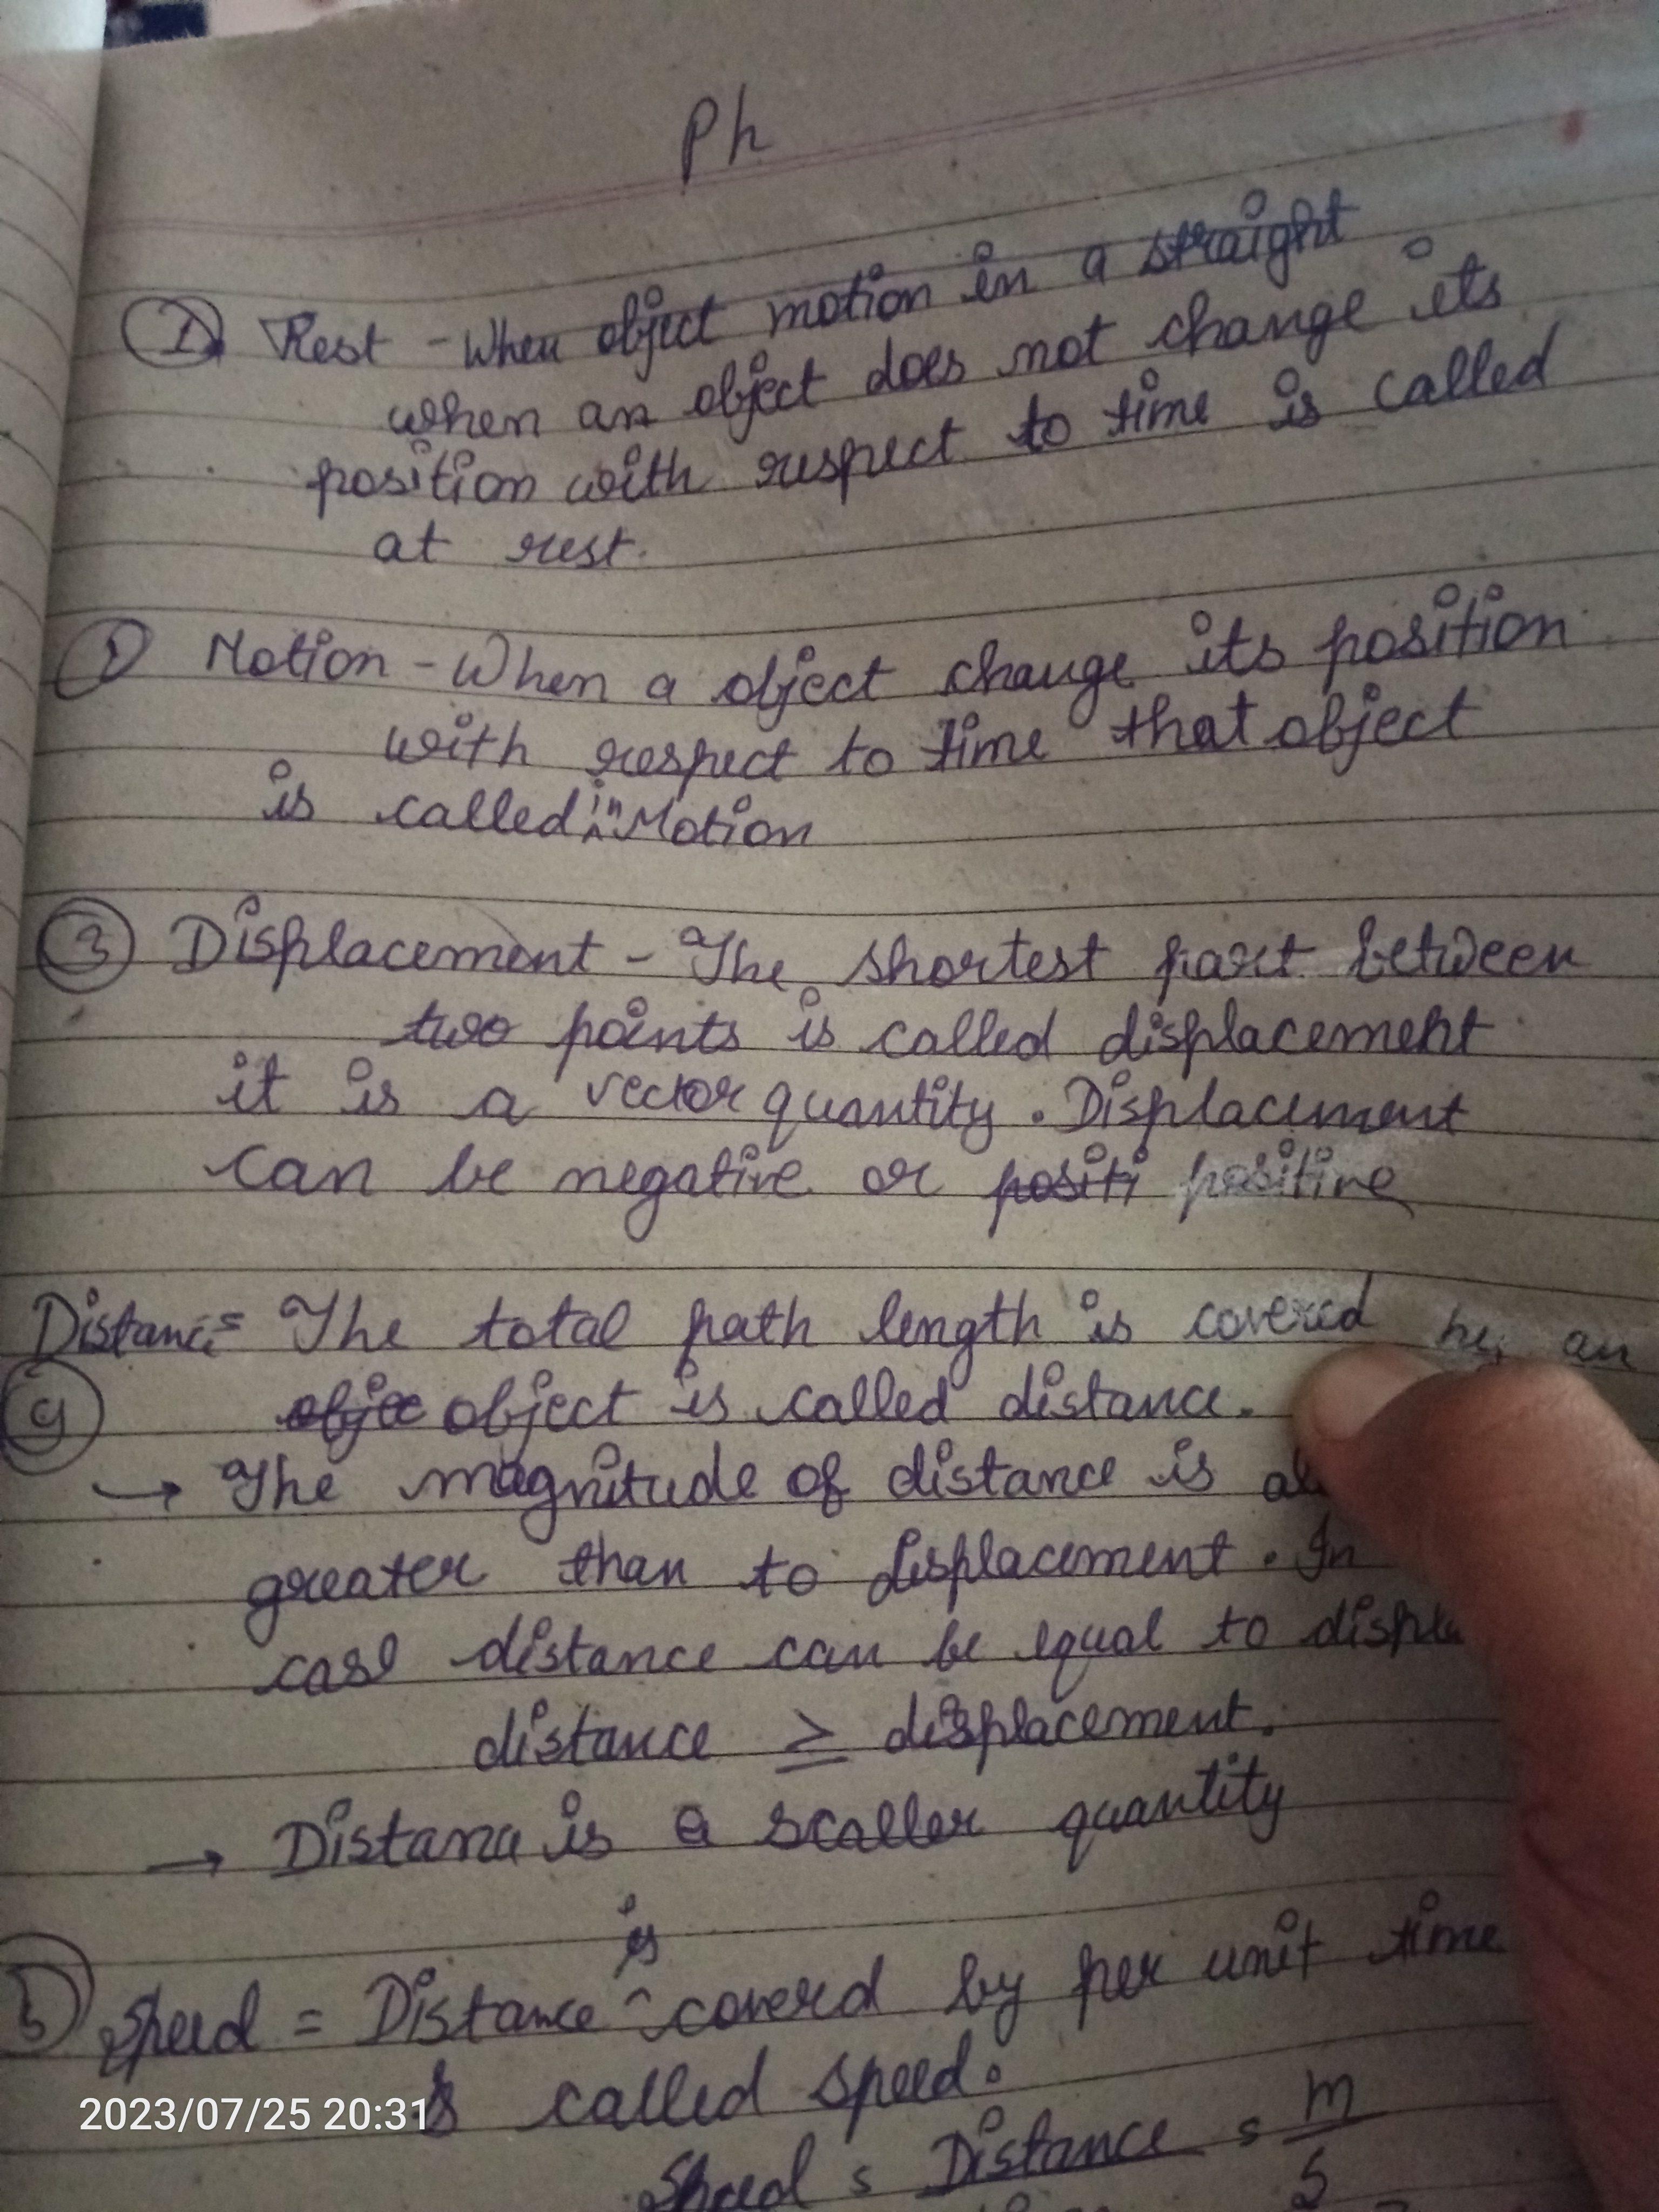 Ph
① Rest - When object motion in a straight
when an object does not change its
position with respect to time is called
at rest.
Motion - When a object change its position
with respect to time that object
is called in Motion
③ Displacement - The shortest part between
two points is called displacement
it is a vector quantity. Displacement
can be negative or positi positive
Distance = The total path length is covered by an
④ objec object is called distance.
→ The magnitude of distance is al
greater than to displacement. In
case distance can be equal to displa
distance ≥ displacement.
→ Distance is a scaller quantity
is
5 Speed = Distance ^ coverd by per unit time
is called speed.
Speed = Distance = m
s
2023/07/25 20:31